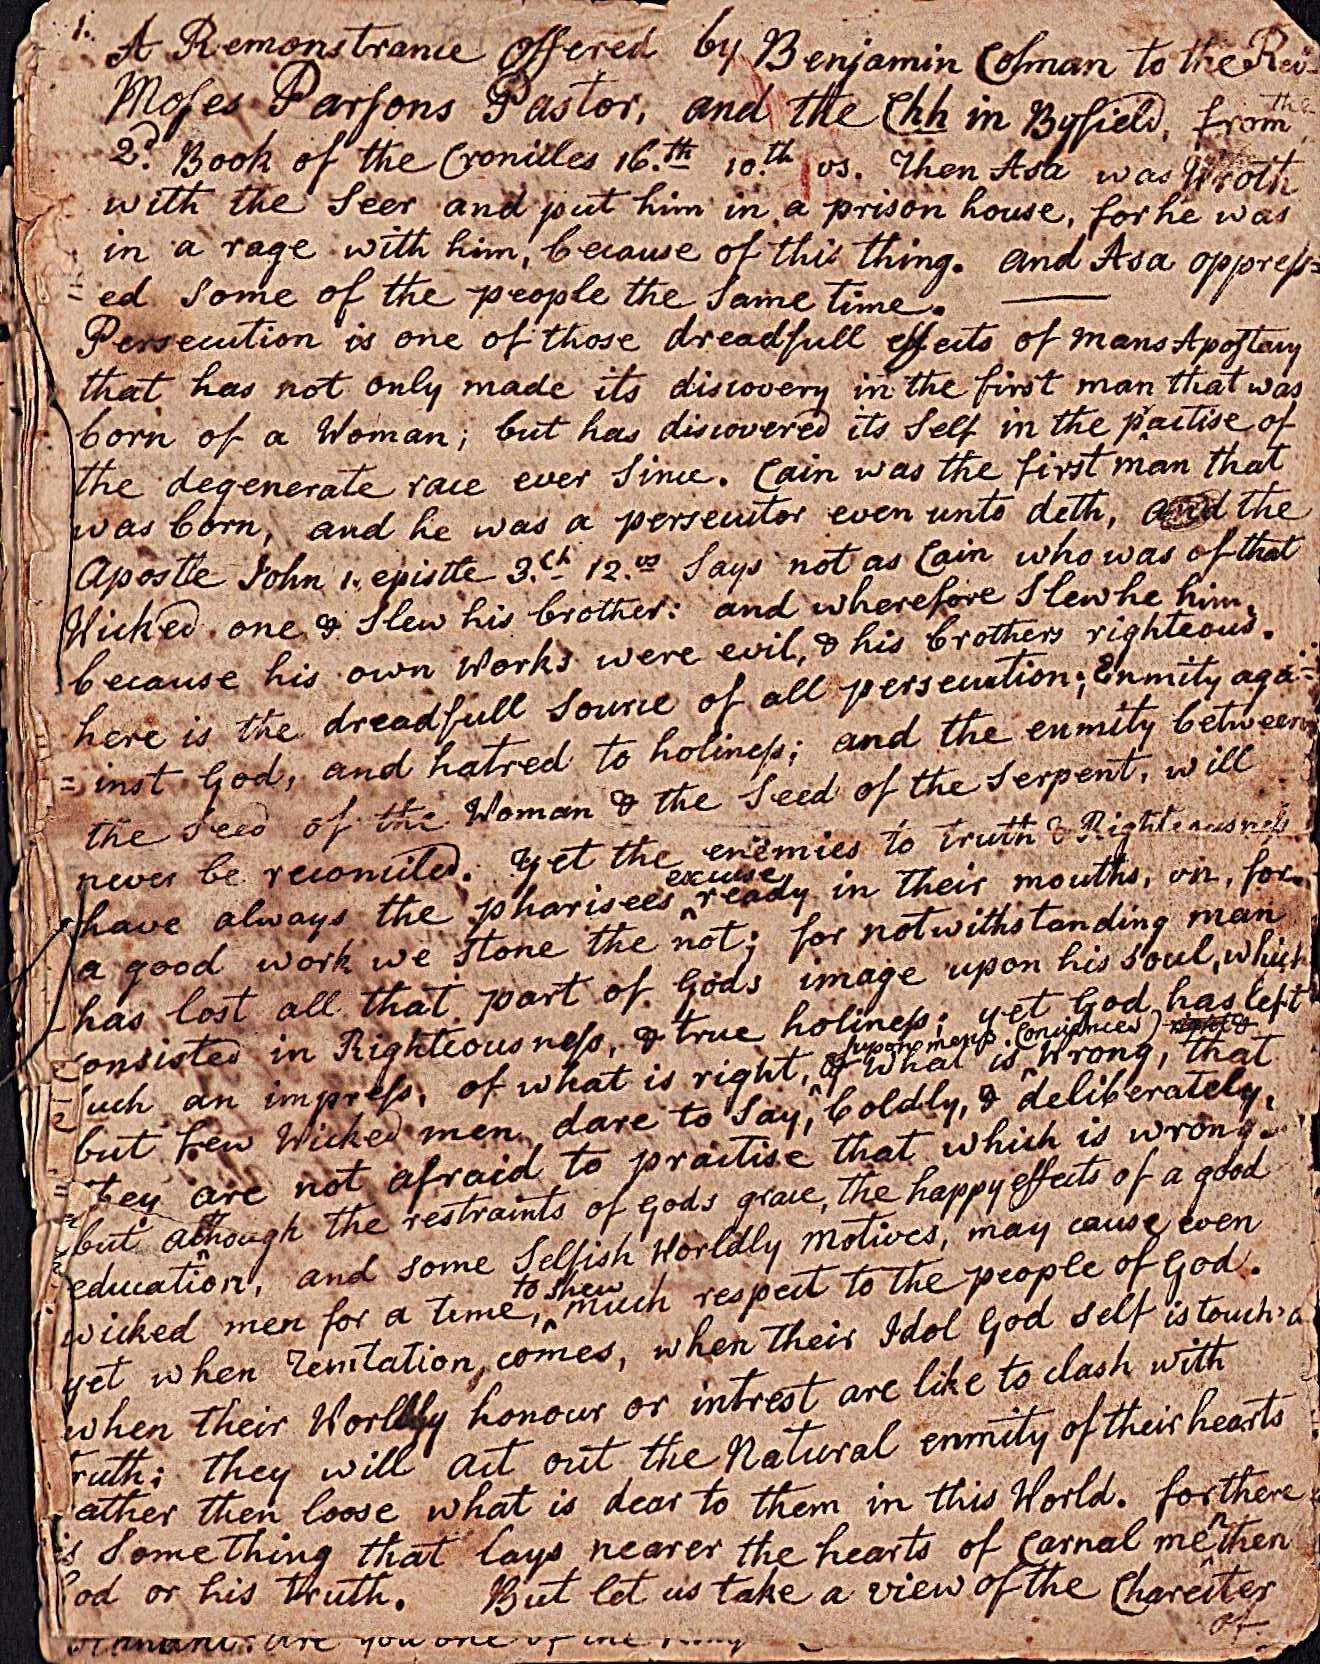 1.
A Remonstrance offered by Benjamin Colman to the Rev.
Moses Parsons Pastor, and the Chh in Byfield, from the
2.d Book of the Cronicles 16.th 10.th vs. Then Asa was Wroth
with the Seer and put him in a prison house, for he was
in a rage with him, because of this thing. and Asa oppress=
ed Some of the people the Same time. ——
Persecution is one of those dreadfull effects of mans Apostacy
that has not only made its discovery in the first man that was
born of a Woman; but has discovered its Self in the practise of
the degenerate race ever Since. Cain was the first man that
was born, and he was a persecutor even unto deth, and the
Apostle John 1. epistle 3.ch 12.vs Says not as Cain who was of that
Wicked one & Slew his brother: and wherefore Slew he him,
because his own Works were evil, & his brothers righteous.
here is the dreadfull Source of all persecution; Enmity aga=
=inst God, and hatred to holiness; and the enmity between
the Seed of the Woman & the Seed of the Serpent, will
never be reconciled. Yet the enemies to truth & Righteousness
have always the pharisees ^excuse ready in their mouths, viz, for
a good work we Stone the not; for notwithstanding man
has lost all that part of Gods image upon his Soul, which
consisted in Righteousness, & true holiness; yet God has left
Such an impress, of what is right, & of what is wrong, that
but few Wicked men dare to Say, boldly, & deliberately,
they are not afraid to practise that which is wrong.
but although the restraints of Gods grace, the happy effects of a good
education, and some Selfish Worldly motives, may cause even
wicked men for a time, ^to shew much respect to the people of God.
yet when Temtation comes, when their Idol God self is touch'd
when their Worldly honour or intrest are like to clash with
truth; they will act out the Natural enmity of their hearts
rather then loose what is dear to them in this World. for there
is Something that lays nearer the hearts of carnal men then
God or his truth. But let us take a view of the Charecter
of